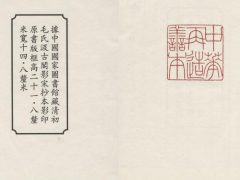 據中國國家圖書館藏清初
毛氏汲古閣影宋抄本影印
原書版框高二十一·八釐
米寬十四·八釐米
中華再造善本